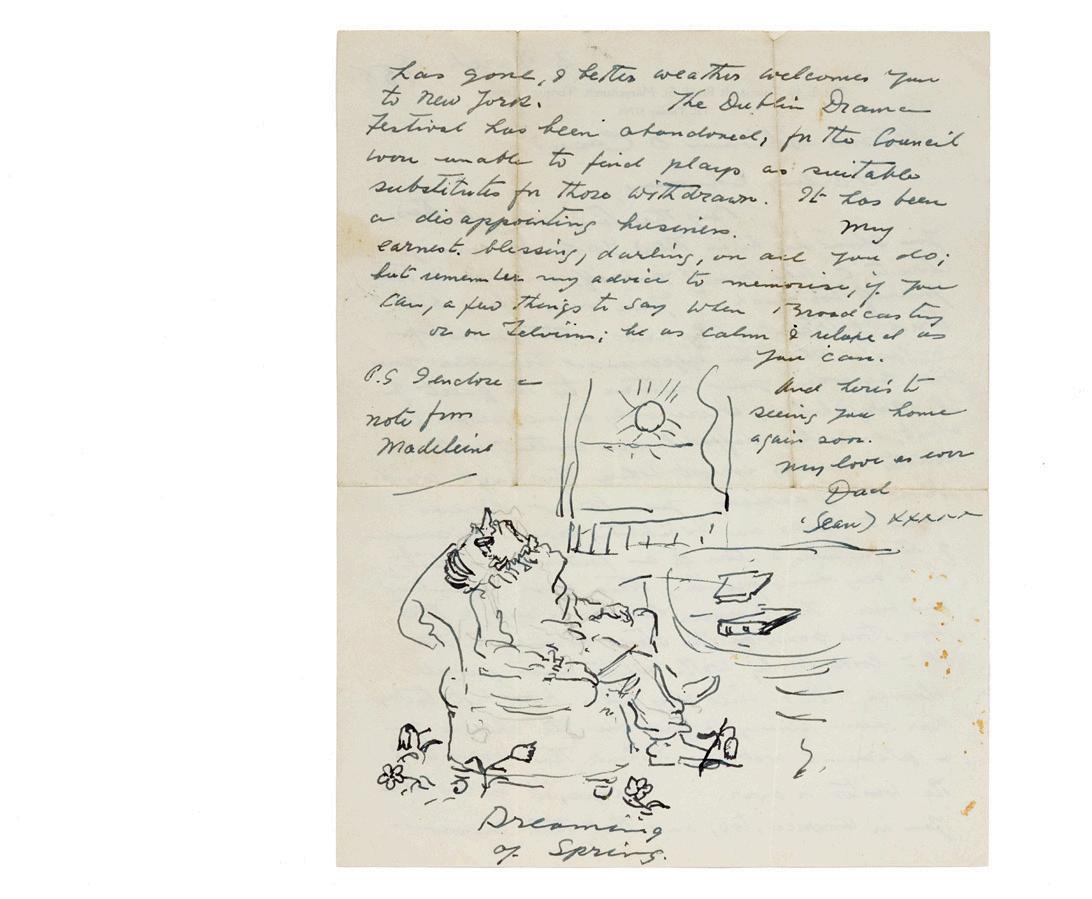 has gone, & better weather welcomes you
to New York. The Dublin Drama
Festival has been abandoned, for the Council
were unable to find plays as suitable
substitutes for those withdrawn. It has been
a disappointing business. My
earnest blessing, darling, on all you do;
but remember my advice to memorise, if you
can, a few things to say when Broadcasting
or on ; be as calm & relaxed as
you can.
P.S I enclose a
note from
Madeleine
And here's to
seeing you home
again soon.
My love as ever
Dad
(Sean)
Dreaming
of Spring.